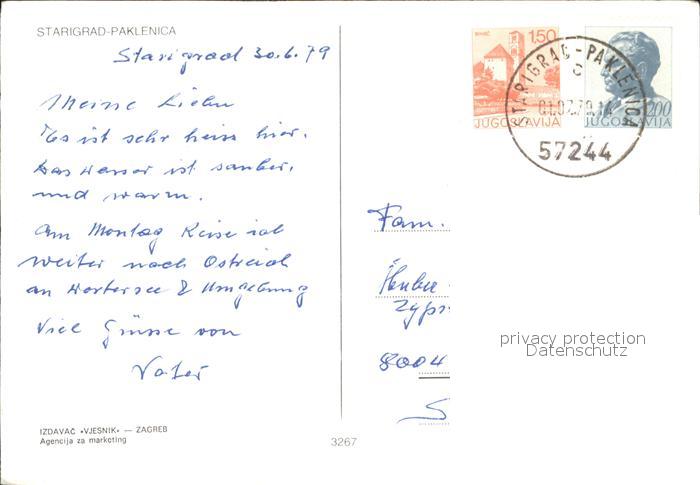 STARIGRAD-PAKLENICA
Starigrad 30.6.79
Meine Lieben
Es ist sehr heiss hier.
Das Wasser ist sauber,
und warm.
Am Montag Reise ich
weiter nach Ostreich
an Wortersee & Umgebung
Viel Grüsse von
Vater
IZDAVAČ »VJESNIK« — ZAGREB
Agencija za marketing
3267
BIHAĆ
1,50
JUGOSLAVIJA
2,00
JUGOSLAVIJA
STARIGRAD-PAKLENICA
c
01.07.79.14
57244
Fam.
8004
privacy protection
Datenschutz